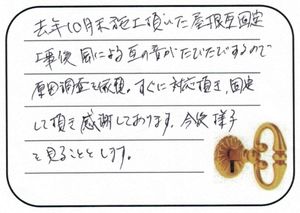 去年10月末施工頂いた屋根瓦固定
工事後風による瓦の音がたびたびするので
原因調査を依頼。すぐに対応頂き、固定
して頂き感謝しております。今後様子
を見ることとします。